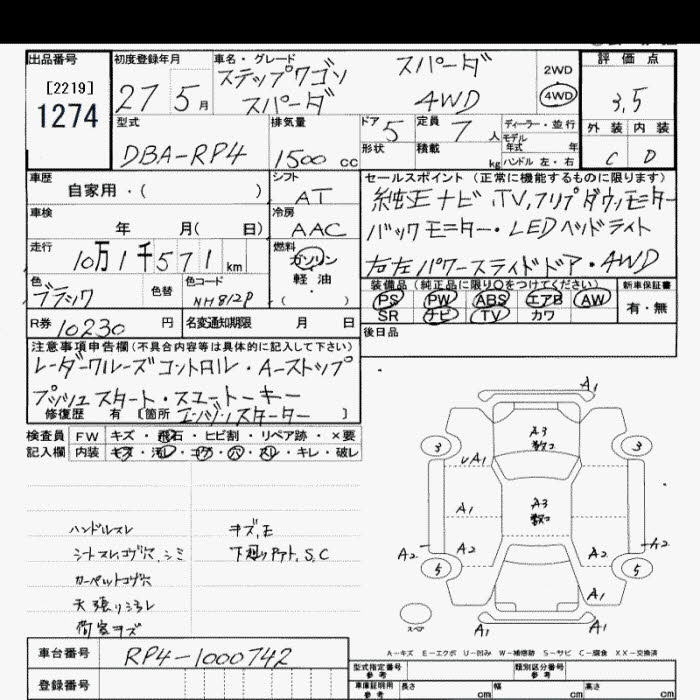 出品番号 初度登録年月 車名・グレード 評価点
[2219] 1274
27 5月
ステップワゴン スパーダ
スパーダ 4WD
2WD 4WD
3,5
型式 排気量 ドア 5 定員 7人 ディーラー・並行
モデル年式 年
外装 内装
DBA-RP4 1500cc
形状 積載 kg ハンドル 左・右
C D
車歴 シフト セールスポイント(正常に機能するものに限ります)
自家用・( ) AT
純正ナビ.TV,フリップダウンモニター
車検 冷房
年 月( 日) AAC
バックモニター・LEDヘッドライト
走行 燃料
10万1千571km ガソリン・軽油・( )
右左パワースライドドア・4WD
色 色替 色コード
ブラック NH812P
装備品(純正品に限り○をつけてください) 新車保証書
PS PW ABS エアB AW 有・無
SR ナビ TV カワ
R券 10230円 名変通知期限 月 日
後日品
注意事項申告欄(不具合内容等は具体的に記入して下さい)
レーダークルーズコントロル・A-ストップ
プッシュスタート・スマートキー
修復歴 有 [箇所 エンジンスターター ]
検査員 FW キズ・飛石・ヒビ割・リペア跡・×要
記入欄 内装 キズ・汚レ・コゲ・穴・スレ・キレ・破レ
ハンドルスレ キズ,E
シートスレ,コゲ穴,シミ S,C
カーペットコゲ穴
天張りシミ
荷室キズ
A1
A3
3 3
UA1 A1
A3
A1 A1
A2 A2 A2 A2
5 5
A1
スペア A1 A1
A-キズ E-エクボ U-凹み W-補修跡 S-サビ C-腐食 XX-交換済
車台番号 RP4-1000742
登録番号
型式指定番号 参考 類別区分番号 参考
車庫証明用 参考 長さ cm 幅 cm 高さ cm